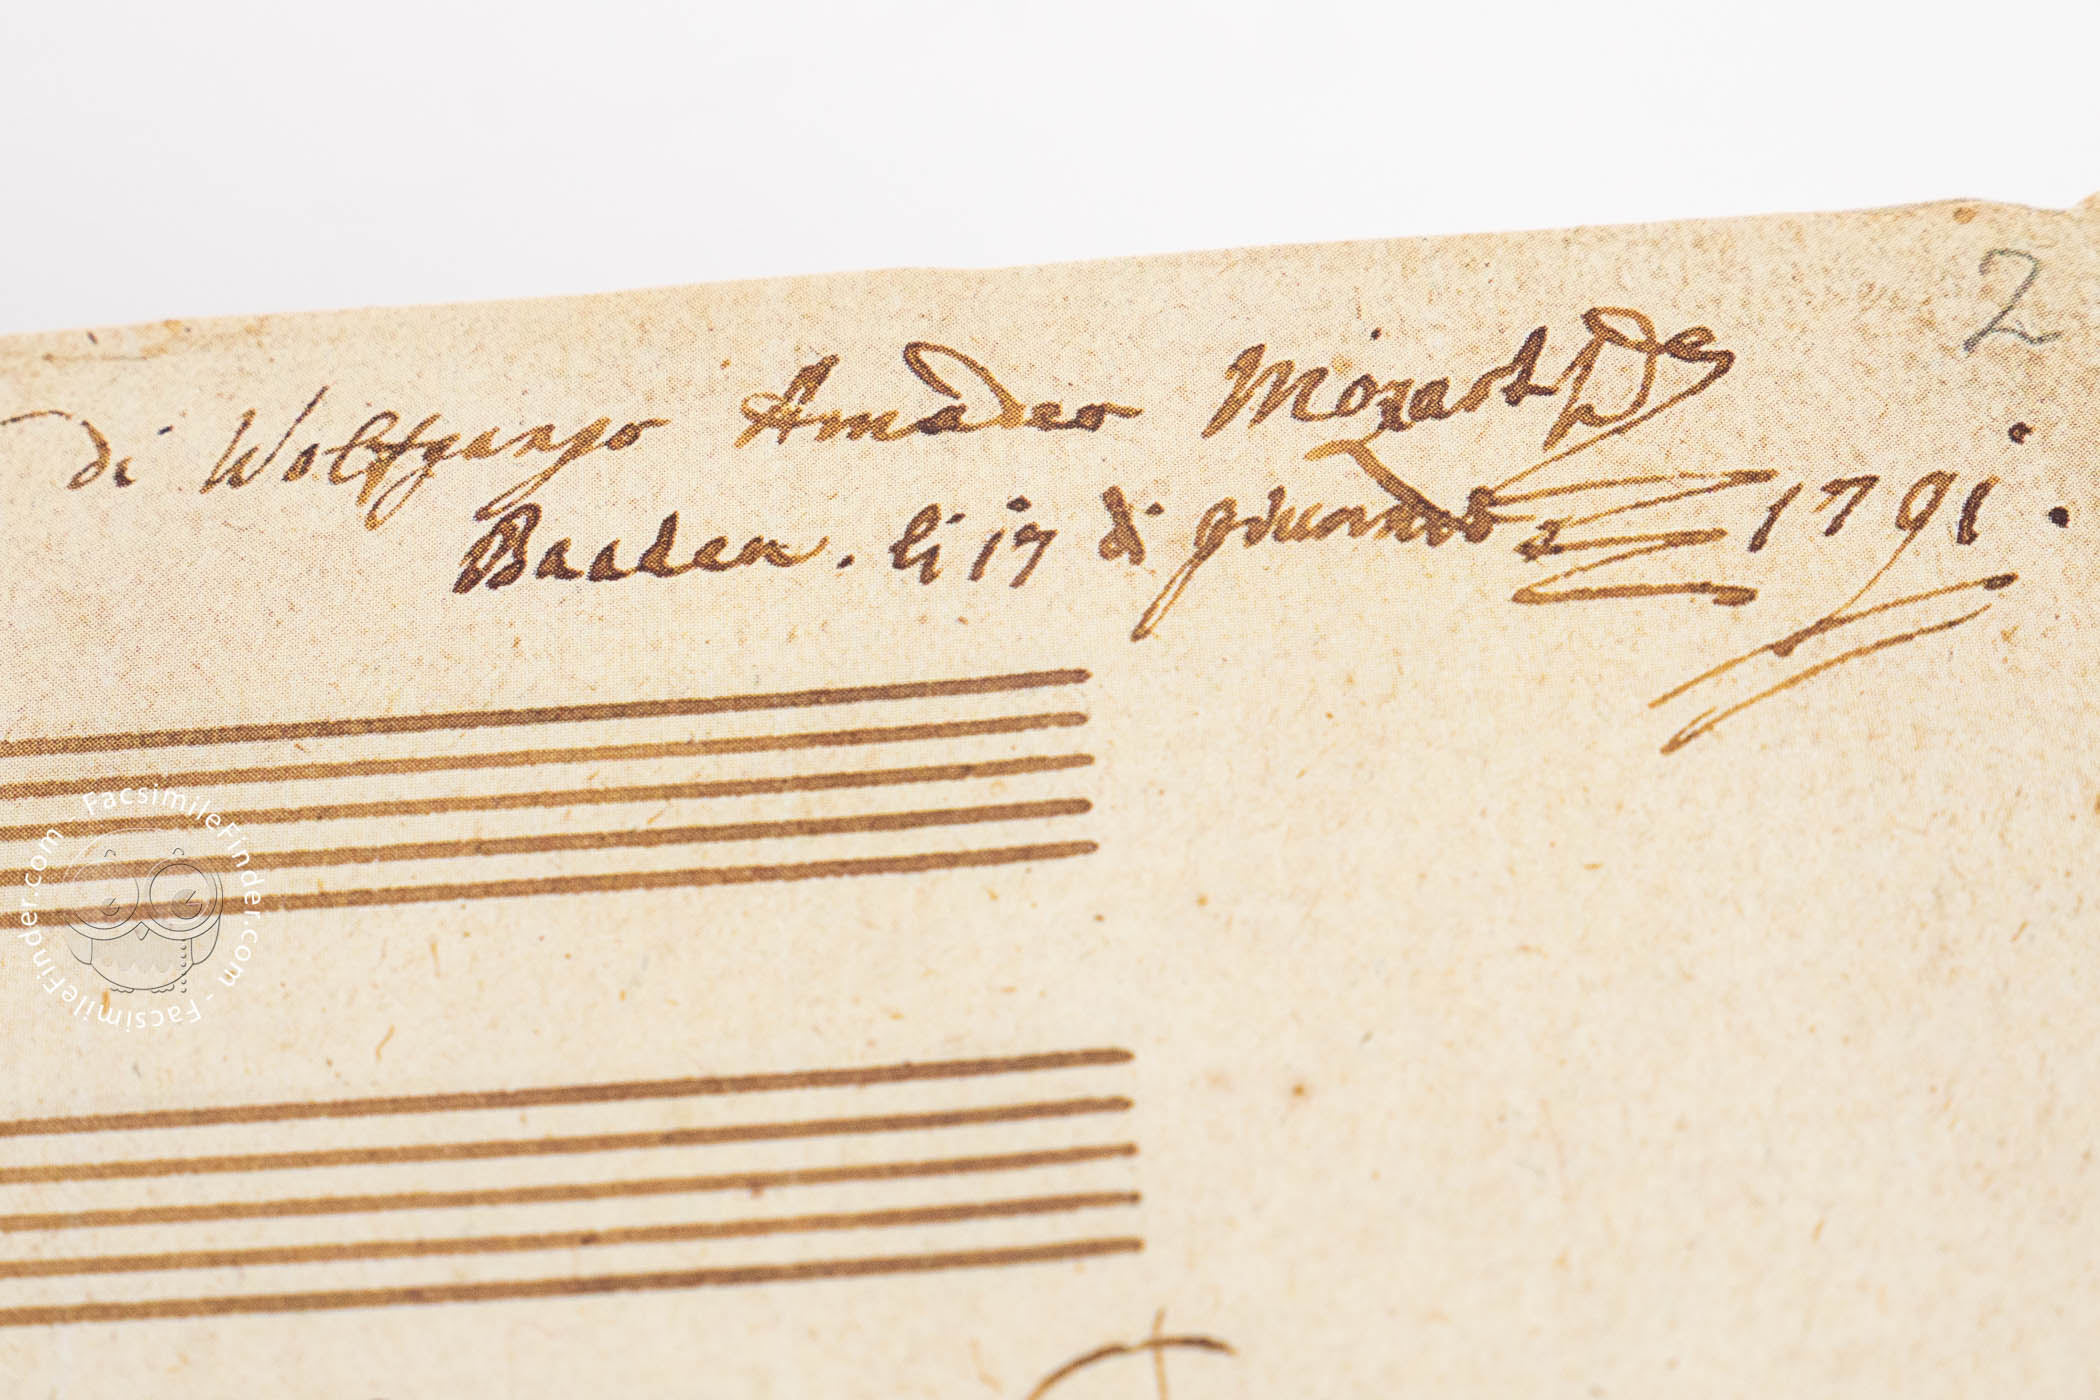 2
di Wolfgango Amadeo Mozart
Baaden. li 17 di giunio 1791.
FacsimileFinder.com - FacsimileFinder.com -